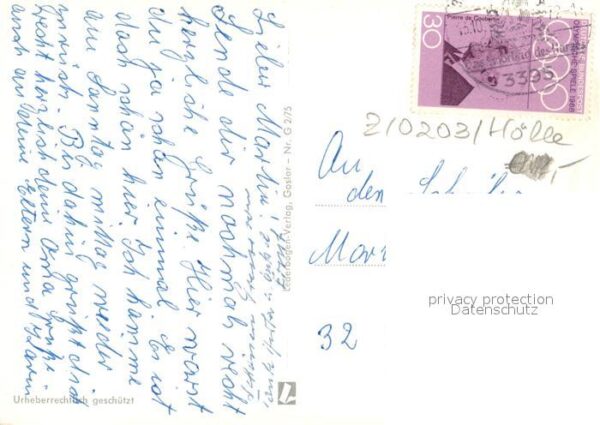 Lieber Martin!
Sende dir nochmals recht
herzliche Grüße. Hier warst
du ja schon einmal. Es ist
doch schön hier. Ich komme
am Sonntag mittag wieder
zurück. Bis dahin grüßt dich
recht herzlich deine Oma. Grüße
auch an deine Eltern und Karin
Lederbogen-Verlag, Goslar – Nr. G 2/75
Urheberrechtlich geschützt
Pierre de Coubertin
30
DEUTSCHE BUNDESPOST
OLYMPISCHE SPIELE 1968
3395
Z10203/Hölle
An
den Schüler
32
privacy protection
Datenschutz